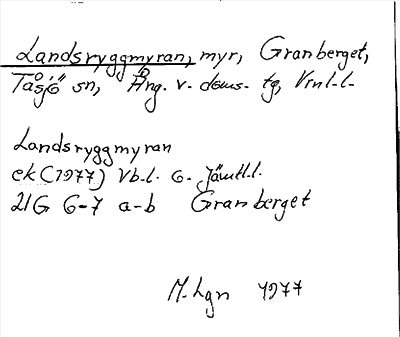 Landsryggmyran, myr, Granberget,
Tåsjö sn, Ång. v. doms. tg, Vrnl.l.
Landsryggmyran
ek (1977) Vb.l. o. Jämtl.l.
21G 6-7 a-b Granberget
M. Lgn 1977